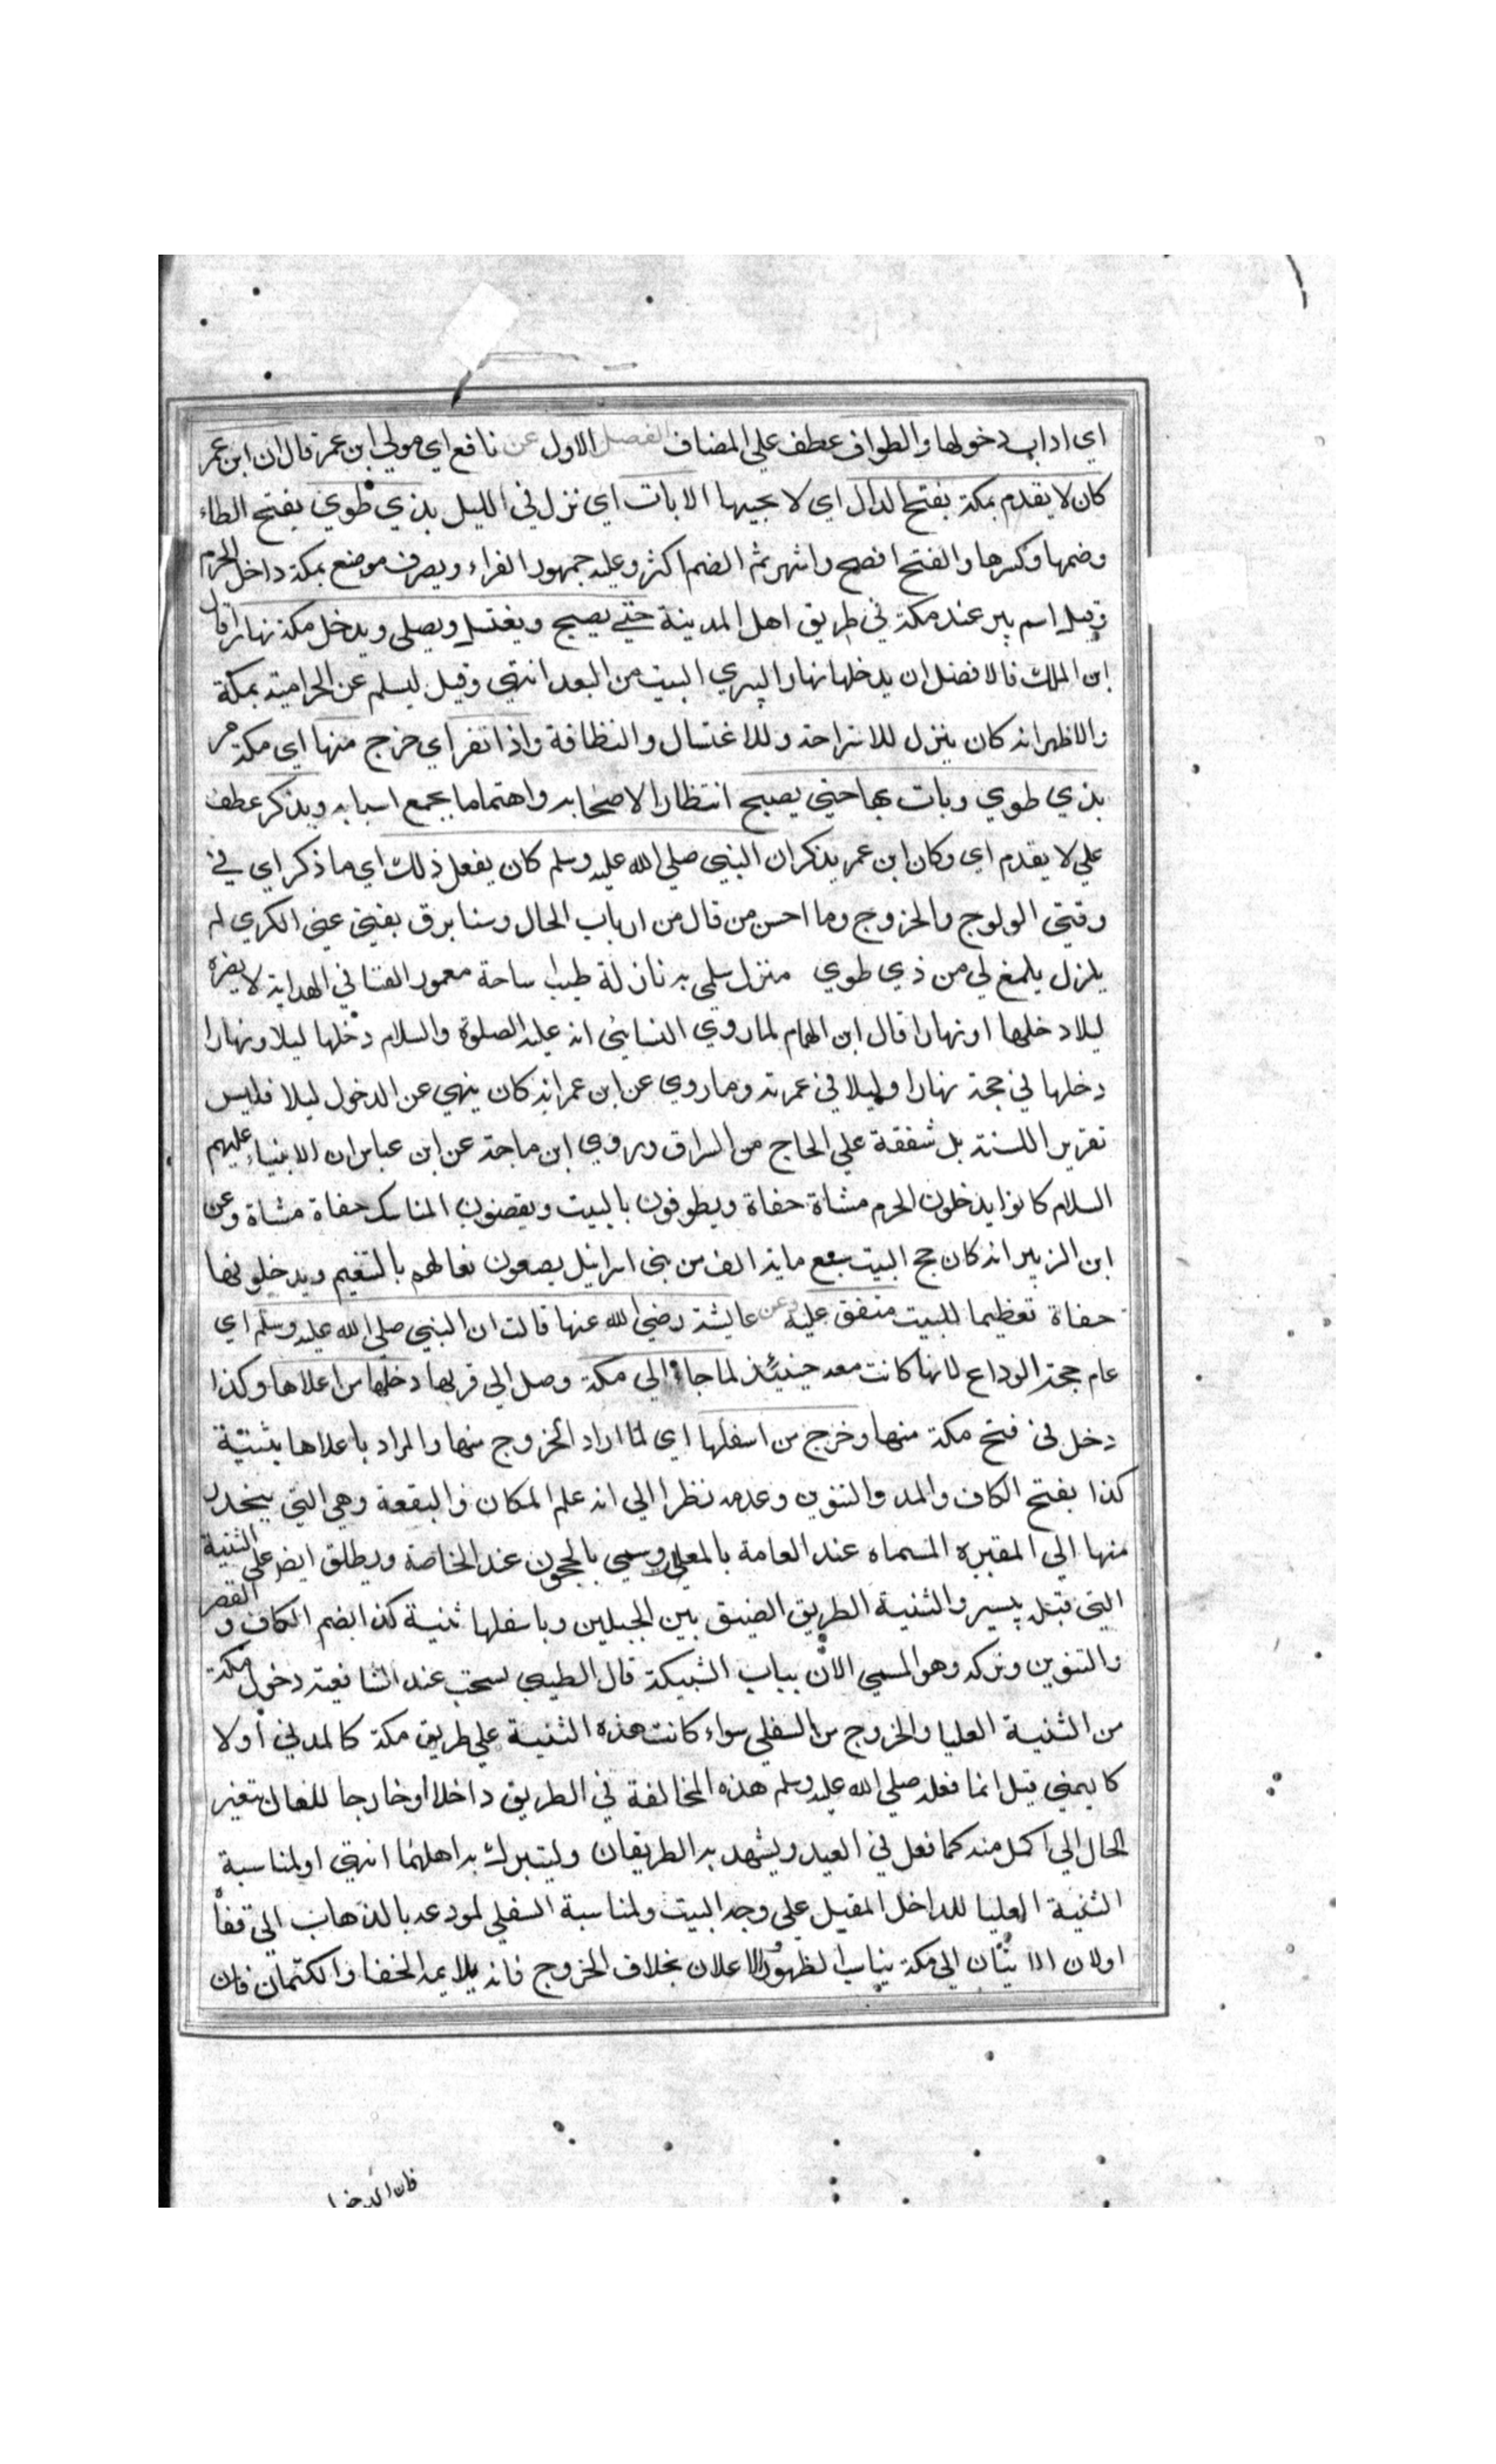 اي اداب دخولها والطواف عطف علي المضاف الفصل الاول عن نافع اي مولي ابن عمر قال ان ابن عمر
كان لا يقدم بمكة بفتح الدال اي لا يجيها الا بات اي نزل في الليل بذي طوي بفتح الطاء
وضمها وكسرها والفتح افصح واشهر ثم الضم اكثر وعليه جمهور القراء ويصرف موضع بمكة داخل الحرم
وقيل اسم بير عند مكة في طريق اهل المدينة حتي يصبح ويغتسل ويصلي ويدخل مكة نهارا قال
ابن الملك فالافضل ان يدخلها نهارا ليري البيت من البعد انتهي وقيل ليسلم عن الحرامية بمكة
والاظهر انه كان ينزل للاستراحة وللاغتسال والنظافة واذا نفر اي خرج منها اي مكة مر
بذي طوي وبات بها حتي يصبح انتظارا لاصحابه واهتماما بجمع اسبابه ويذكر عطف
علي لا يقدم اي وكان ابن عمر يذكر ان النبي صلي الله عليه وسلم كان يفعل ذلك اي ما ذكر اي في
وقتي الولوج والخروج وما احسن من قال من ارباب الحال وسنا برق بفتي عني الكري لم
يلزل يلمغ لي من ذي طوي منزل سلمي به نازلة طيب ساحة معمور الفنا في الهداية لا يضره
ليلا دخلها او نهارا قال ابن الهمام لما روي النسائي انه عليه الصلوة والسلام دخلها ليلا ونهارا
دخلها في حجة نهارا وليلا في عمرته وما روي عن ابن عمر انه كان ينهي عن الدخول ليلا فليس
تقرير اللسنة بل شفقة علي الحاج من السراق وروي ابن ماجة عن ابن عباس ان الانبياء عليهم
السلام كانوا يدخلون الحرم مشاة حفاة ويطوفون بالبيت ويقضون المناسك حفاة مشاة وعن
ابن الزبير انه كان حج البيت سبع ماية الف من بني اسرائيل يضعون نعالهم بالتنعيم ويدخلونها
حفاة تعظيما للبيت متفق عليه وعن عايشة رضي الله عنها قالت ان النبي صلي الله عليه وسلم اي
عام حجة الوداع لانها كانت معه حينئذ لما جاء الي مكة وصل الي قربها دخلها من اعلاها وكذا
دخل في فتح مكة منها وخرج من اسفلها اي لما اراد الخروج منها والمراد باعلاها بثنية
كذا بفتح الكاف والمد والتنوين وعدمه نظرا الي انه علم المكان والبقعة وهي التي ينحدر
منها الي المقبره المسماه عند العامة بالمعلي وسمي بالحجون عند الخاصة ويطلق ايضر علي الثنية
التي قبله بيسير والثنية الطريق الضيق بين الجبلين وباسفلها ثنية كذا بضم الكاف و القصر
والتنوين وتركه وهو المسمي الان بباب الشبيكة قال الطيبي يستحب عند الشافعية دخول مكة
من الثنية العليا والخروج من السفلي سواء كانت هذه الثنية علي طريق مكة كالمدني اولا
كايمني قيل انما فعله صلي الله عليه وسلم هذه المخالفة في الطريق داخلا او خارجا للفال بتغير
الحال الي اكمل منه كما فعل في العيد ويشهد به الطريقان وليتبرك به اهلهما انتهي او لمناسبة
الثنية العليا للداخل المقبل علي وجه البيت ولمناسبة السفلي لمودعه بالذهاب الي قفاً
اولان الاتيان الي مكة يناسب الظهور والاعلان بخلاف الخروج فانه يلايمه الخفا والكتمان فان
فان الدخول